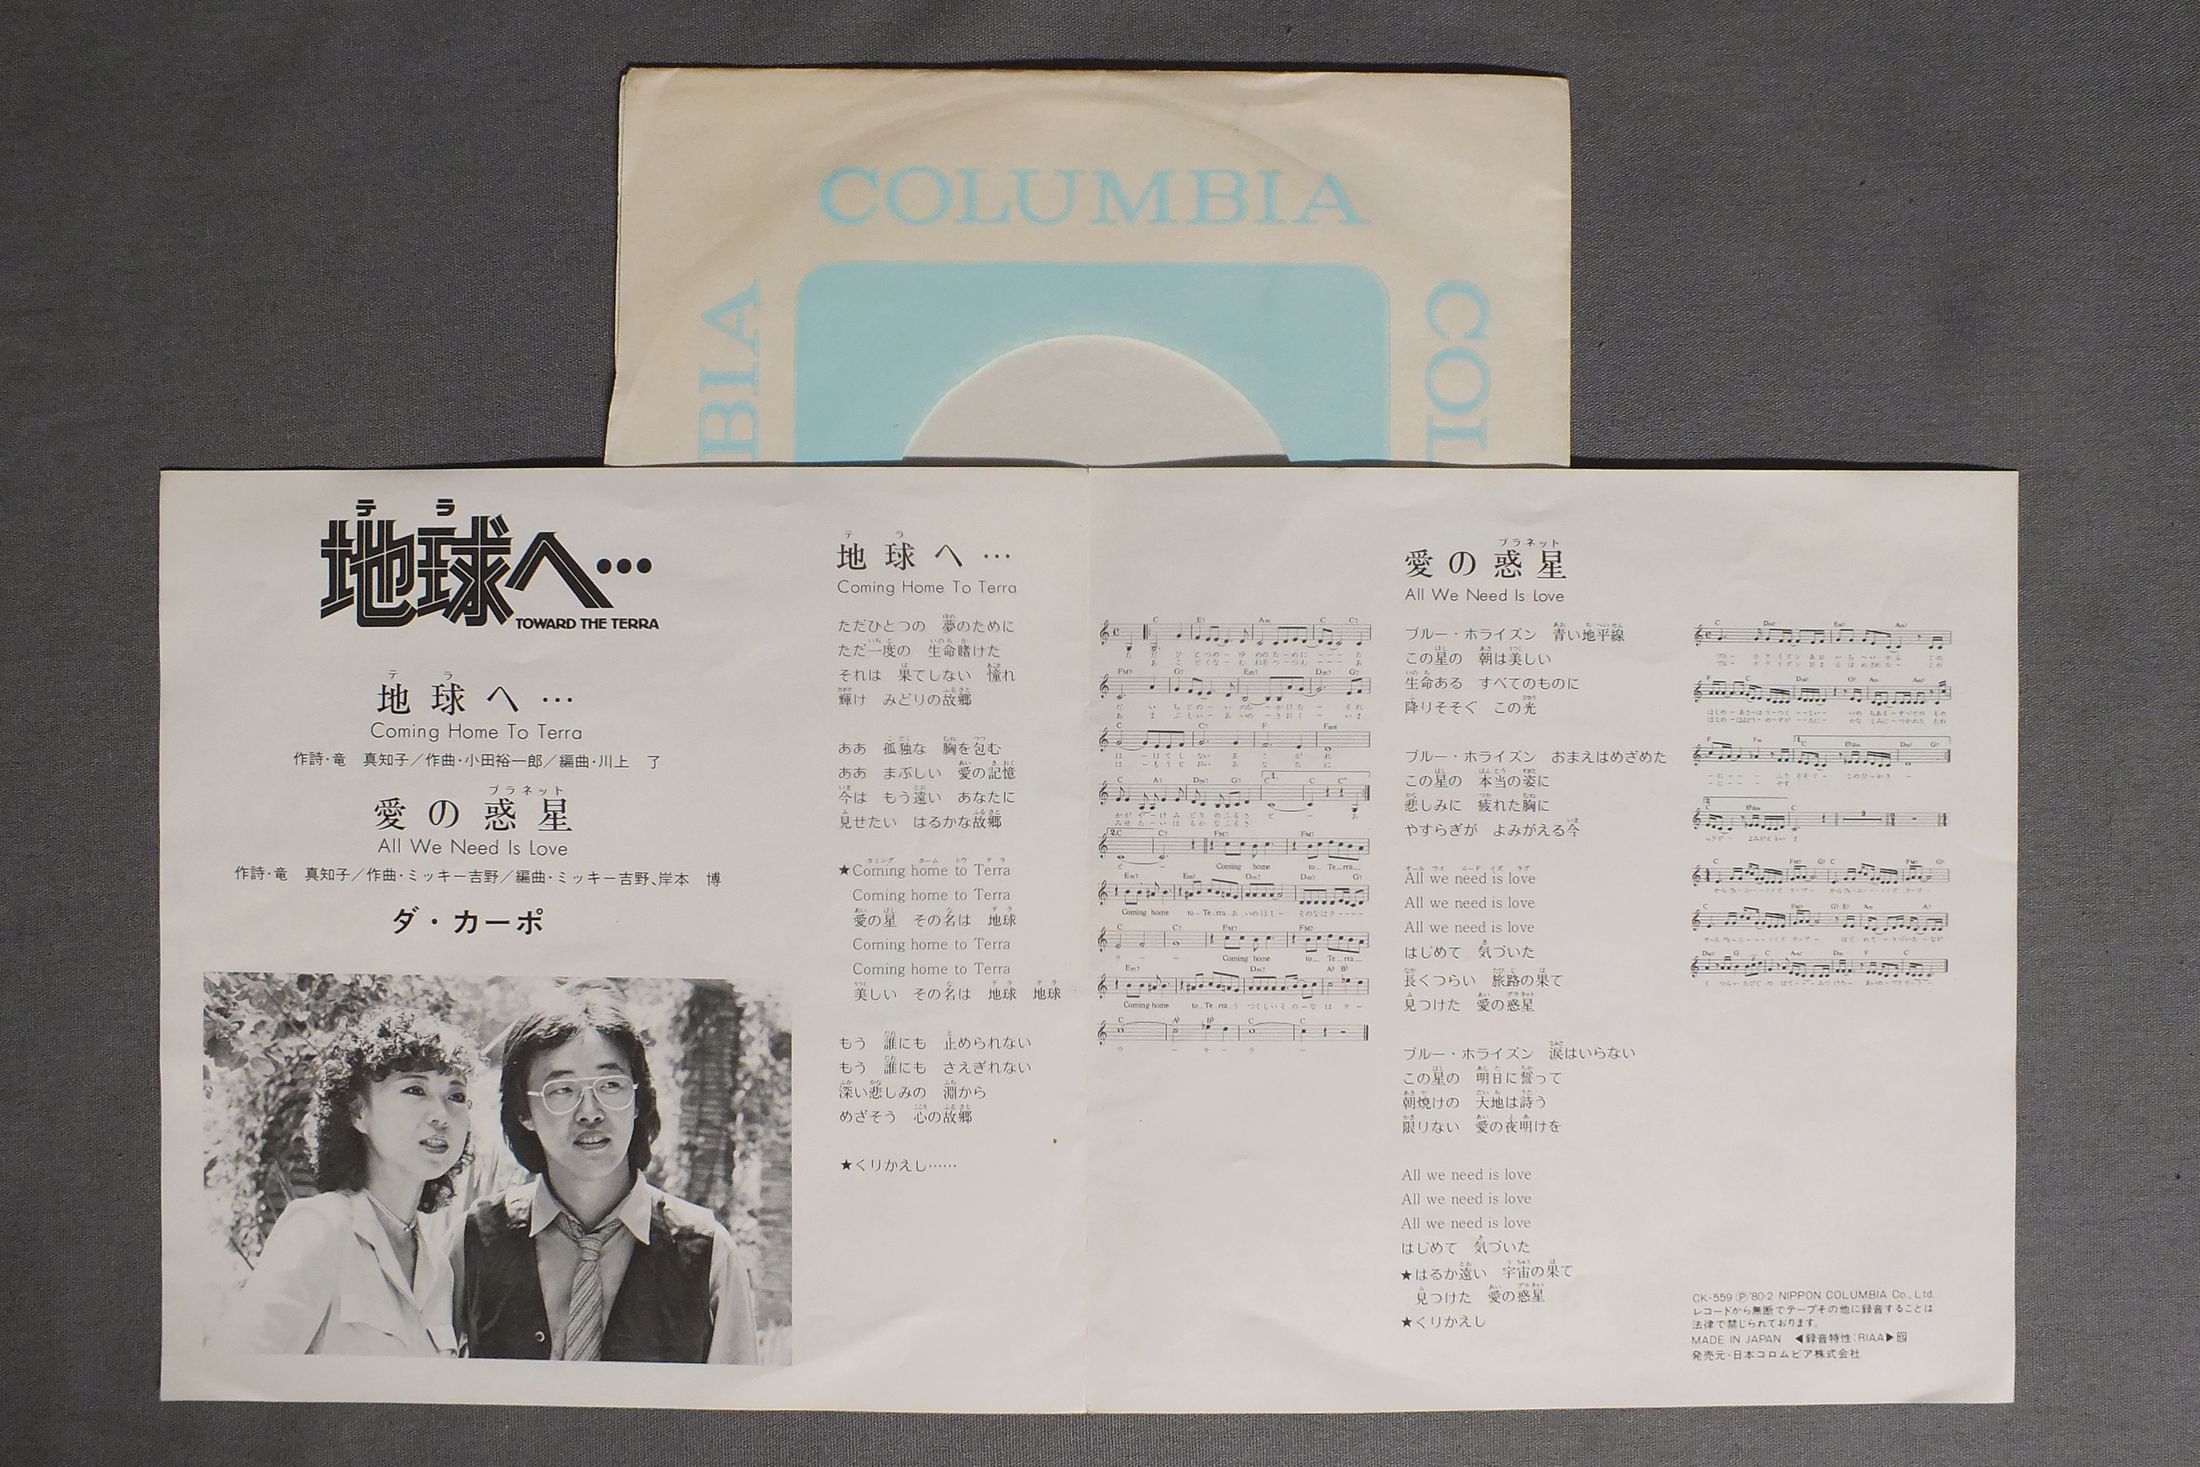 COLUMBIA
BIA
COL
テラ
地球へ…
TOWARD THE TERRA
テラ
地球へ…
Coming Home To Terra
作詩・竜 真知子／作曲・小田裕一郎／編曲・川上 了
プラネット
愛の惑星
All We Need Is Love
作詩・竜 真知子／作曲・ミッキー吉野／編曲・ミッキー吉野、岸本 博
ダ・カーポ
テラ
地球へ…
Coming Home To Terra
ただひとつの 夢のために
ただ一度の 生命賭けた
それは 果てしない 憧れ
輝け みどりの故郷
ああ 孤独な 胸を包む
ああ まぶしい 愛の記憶
今は もう遠い あなたに
見せたい はるかな故郷
カミング ホーム トウ テラ
★Coming home to Terra
Coming home to Terra
愛の星 その名は 地球
Coming home to Terra
Coming home to Terra
美しい その名は 地球 地球
もう 誰にも 止められない
もう 誰にも さえぎれない
深い悲しみの 淵から
めざそう 心の故郷
★くりかえし……
プラネット
愛の惑星
All We Need Is Love
ブルー・ホライズン 青い地平線
この星の 朝は美しい
生命ある すべてのものに
降りそそぐ この光
ブルー・ホライズン おまえはめざめた
この星の 本当の姿に
悲しみに 疲れた胸に
やすらぎが よみがえる今
オール ウイ ニード イズ ラブ
All we need is love
All we need is love
All we need is love
はじめて 気づいた
長くつらい 旅路の果て
見つけた 愛の惑星
ブルー・ホライズン 涙はいらない
この星の 明日に誓って
朝焼けの 大地は詩う
限りない 愛の夜明けを
All we need is love
All we need is love
All we need is love
はじめて 気づいた
★はるか遠い 宇宙の果て
見つけた 愛の惑星
★くりかえし
CK-559 Ⓟ'80・2 NIPPON COLUMBIA Co., Ltd.
レコードから無断でテープその他に録音することは
法律で禁じられております。
MADE IN JAPAN ◀録音特性：RIAA▶
発売元・日本コロムビア株式会社